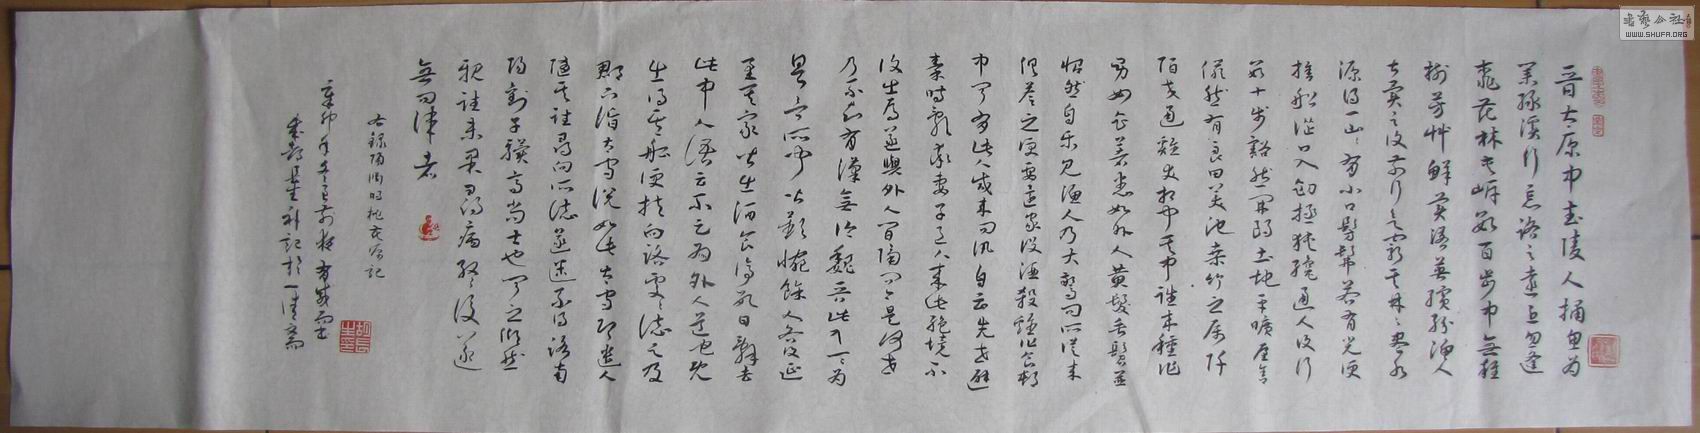 晉太原中武陵人捕魚為
業緣溪行忘路之遠近忽逢
桃花林夹岸數百步中無雜
樹芳艸鮮美落英繽紛漁人
甚異之復前行欲窮其林林盡水
源得一山山有小口髣髴若有光便
捨船從口入初極狹纔通人復行
數十步豁然開朗土地平曠屋舍
儼然有良田美池桑竹之屬阡
陌交通雞犬相聞其中往來種作
男女衣着悉如外人黃髮垂髫並
怡然自樂見漁人乃大驚問所從來
具答之便要還家設酒殺雞作食村
中聞有此人咸來問訊自云先世避
秦時亂率妻子邑人來此絕境不
復出焉遂與外人間隔問今是何世
乃不知有漢無論魏晉此人一一為
具言所聞皆歎惋餘人各復延
至其家皆出酒食停數日辭去
此中人語云不足為外人道也既
出得其船便扶向路處處誌之及
郡下詣太守說如此太守即遣人
隨其往尋向所誌遂迷不復得路南
陽劉子驥高尚士也聞之欣然
親往未果尋病終後遂
無問津者
右錄陶淵明桃花源記
於一清齋
書藝公社
WWW.SHUFA.ORG